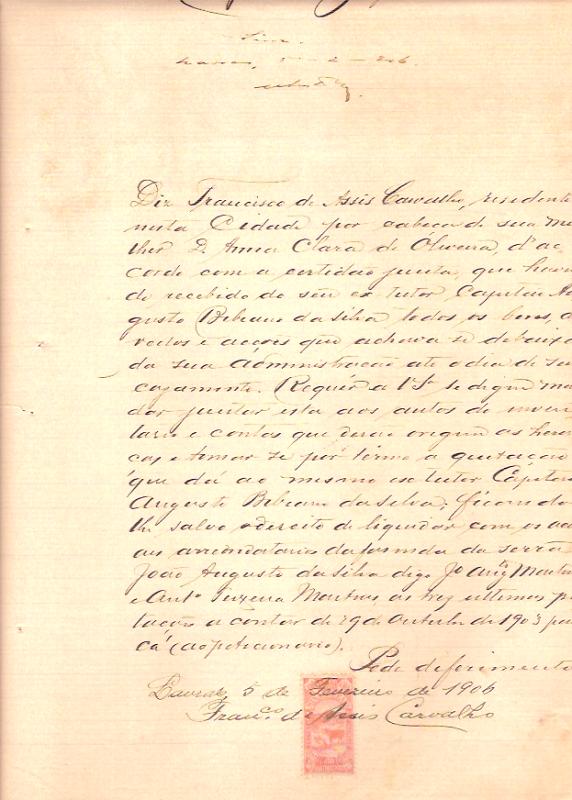 Sim.
Lavras, 5 - 2 - 906.
Diz Francisco de Assis Carvalho, residente
nesta Cidade por cabeça de sua mu
lher D. Anna Clara de Oliveira, d'ac
cordo com a certidão junta, que haven
do recebido do seu ex tutor, Capitão Au
gusto Bibiano da Silva todos os bens, di
reitos e acções que achava se debaixo
da sua administração até o dia de seu
cazamento. Requer a V.S. se digne man
dar juntar esta aos autos de inven
tario e contas que derão origem as heran
ças e tomar se por termo a quitação
que dá ao mesmo ex tutor Capitão
Augusto Bibiano da Silva; ficando
lhe salvo o direito de liquidar com os
arrendatarios da fasenda da serra
João Augusto da Silva digo Jº Augº Martins
e Antº Teixeira Martins, os trez ultimos
a contar de 29 de Outubro de 1903 para
cá (ao peticionario).
Pede deferimento
Lavras, 5 de Fevereiro de 1906
Franco. de Assis Carvalho